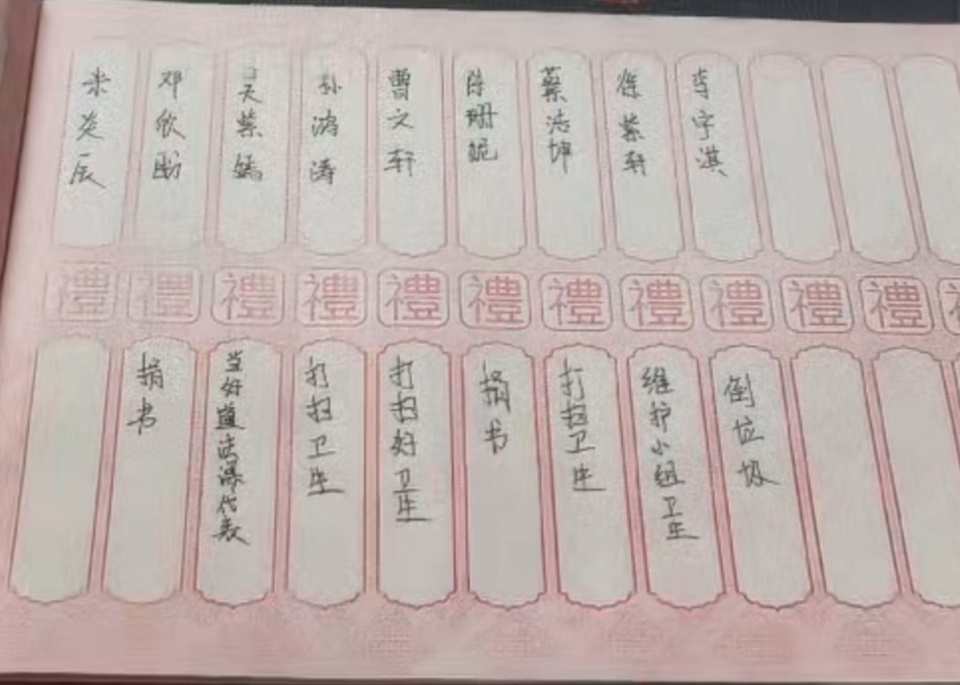 炎辰
邓欣
吴紫嫣
孙鸿涛
曹文轩
陈珊妮
蔡浩坤
徐紫轩
李宇淇
禮 禮 禮 禮 禮 禮 禮 禮 禮 禮 禮
捐书
当好道法课代表
打扫卫生
打扫好卫生
捐书
打扫卫生
维护小组卫生
倒垃圾